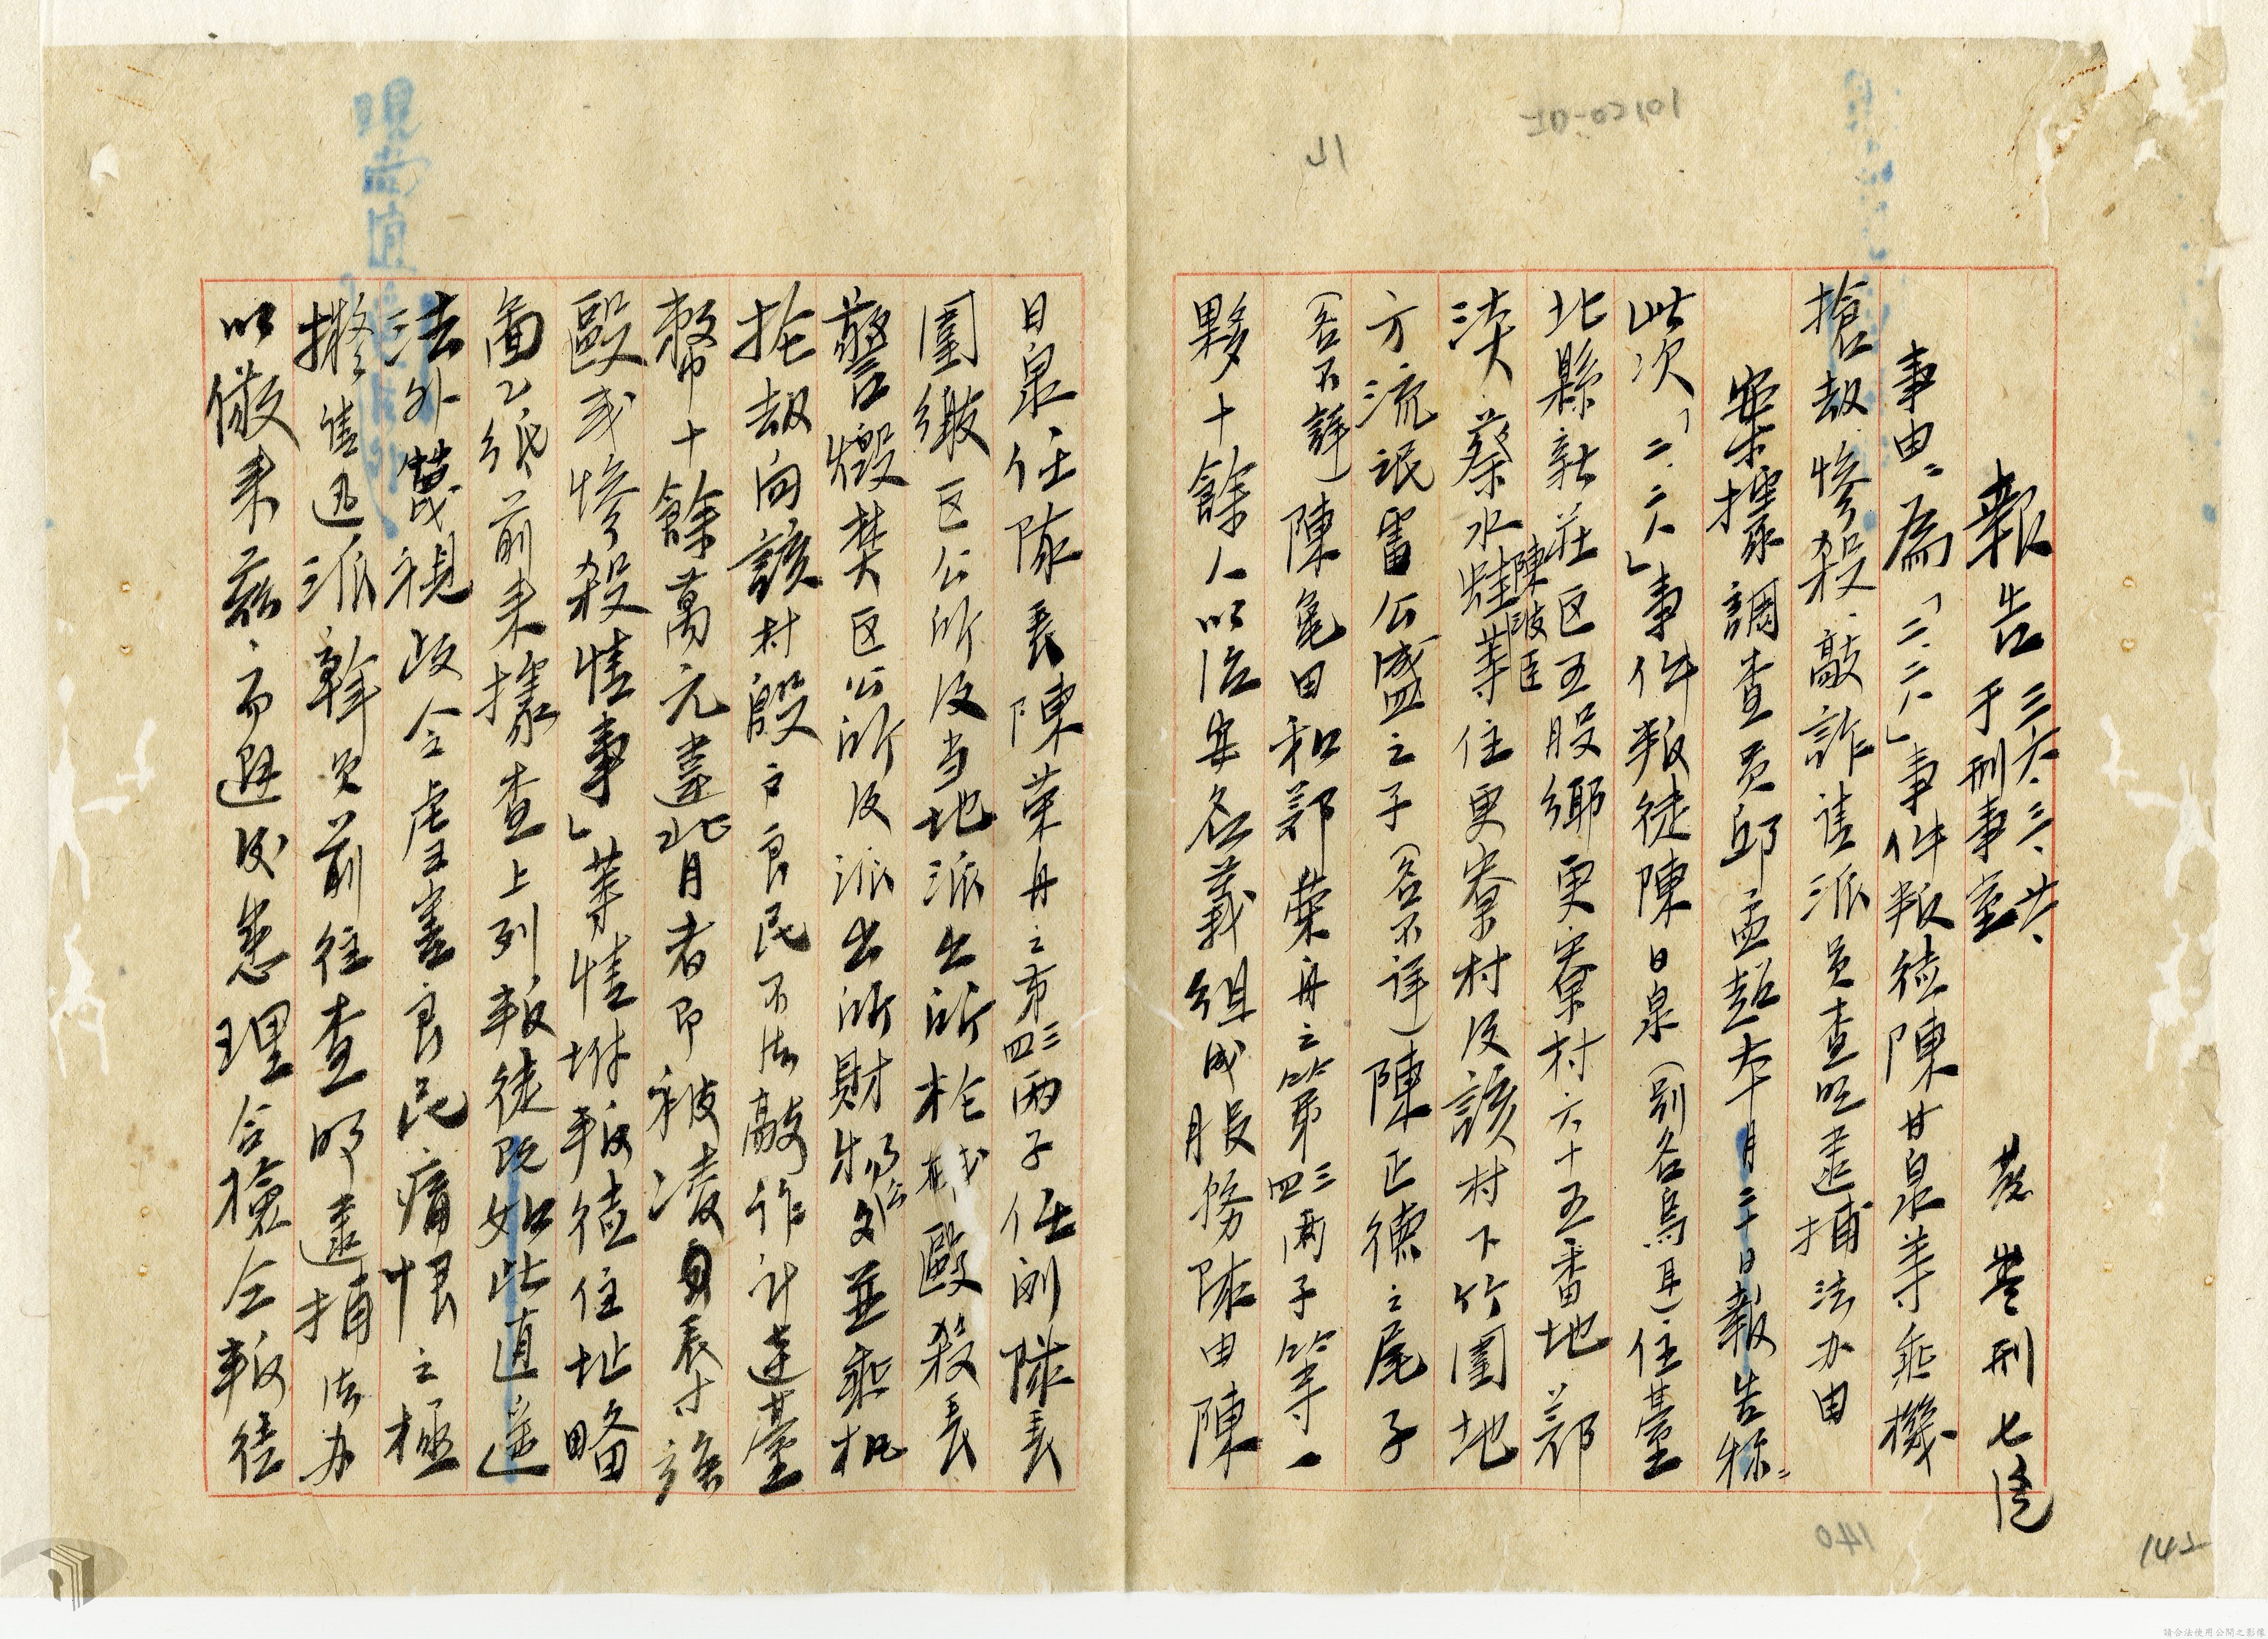 報告 三六、三、廿六、于刑事室 基警刑七隊
事由：為「二．二八」事件叛徒陳廿泉等乘機
搶劫慘殺．敲詐請派員查明逮捕法办由
案據調查員邱孟超本月二十日報告称：
此次「二．二八」事件叛徒陳日泉（別名烏耳）住臺
北縣新莊区五股鄉更寮村六十五番地．郭
陳波臣
渎蔡水蛙等住更寮村及該村下竹圍地
方流氓畨公盛之子（名不詳）陳正德之尾子
（名不詳）陳龟田和郭荣舟之第三四兩子等一
夥十餘人以治安名義組成服務隊由陳
日泉任隊長陳荣舟之第三四兩子任副隊長
圍繳区公所及当地派出所枪械毆殺長
警燬焚区公所及派出所財物公文並乘机
抢劫向該村殷户良民不法敲诈计達臺
幣十餘萬元違背者即被凌身表才強
毆或慘殺情事」等情坿叛徒住址略
畵乙纸前来據查上列叛徒既如此逍遥
法外蔑視政令虐害良民痛恨之極
擬請迅派幹员前往查明逮捕法办
以儆来兹．而避後患理合檢仝叛徒
140
142
請合法使用公開之影像